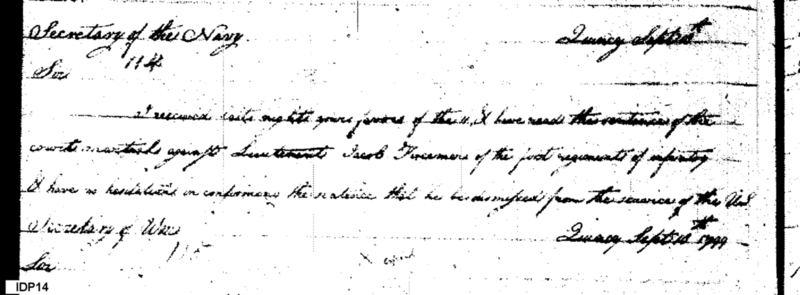 Secretary of the Navy. Quincy Sept 18th
114
Sir
I received last night your favour of the 11. I have read the sentence of the
court martial against Lieutenant Jacob Freeman of the first regiment of infantry
I have no hesitation in confirming the sentence that he be dismissed from the service of the U.S.
Secretary of War Quincy Sept 18th 1799
115
Sir
IDP14